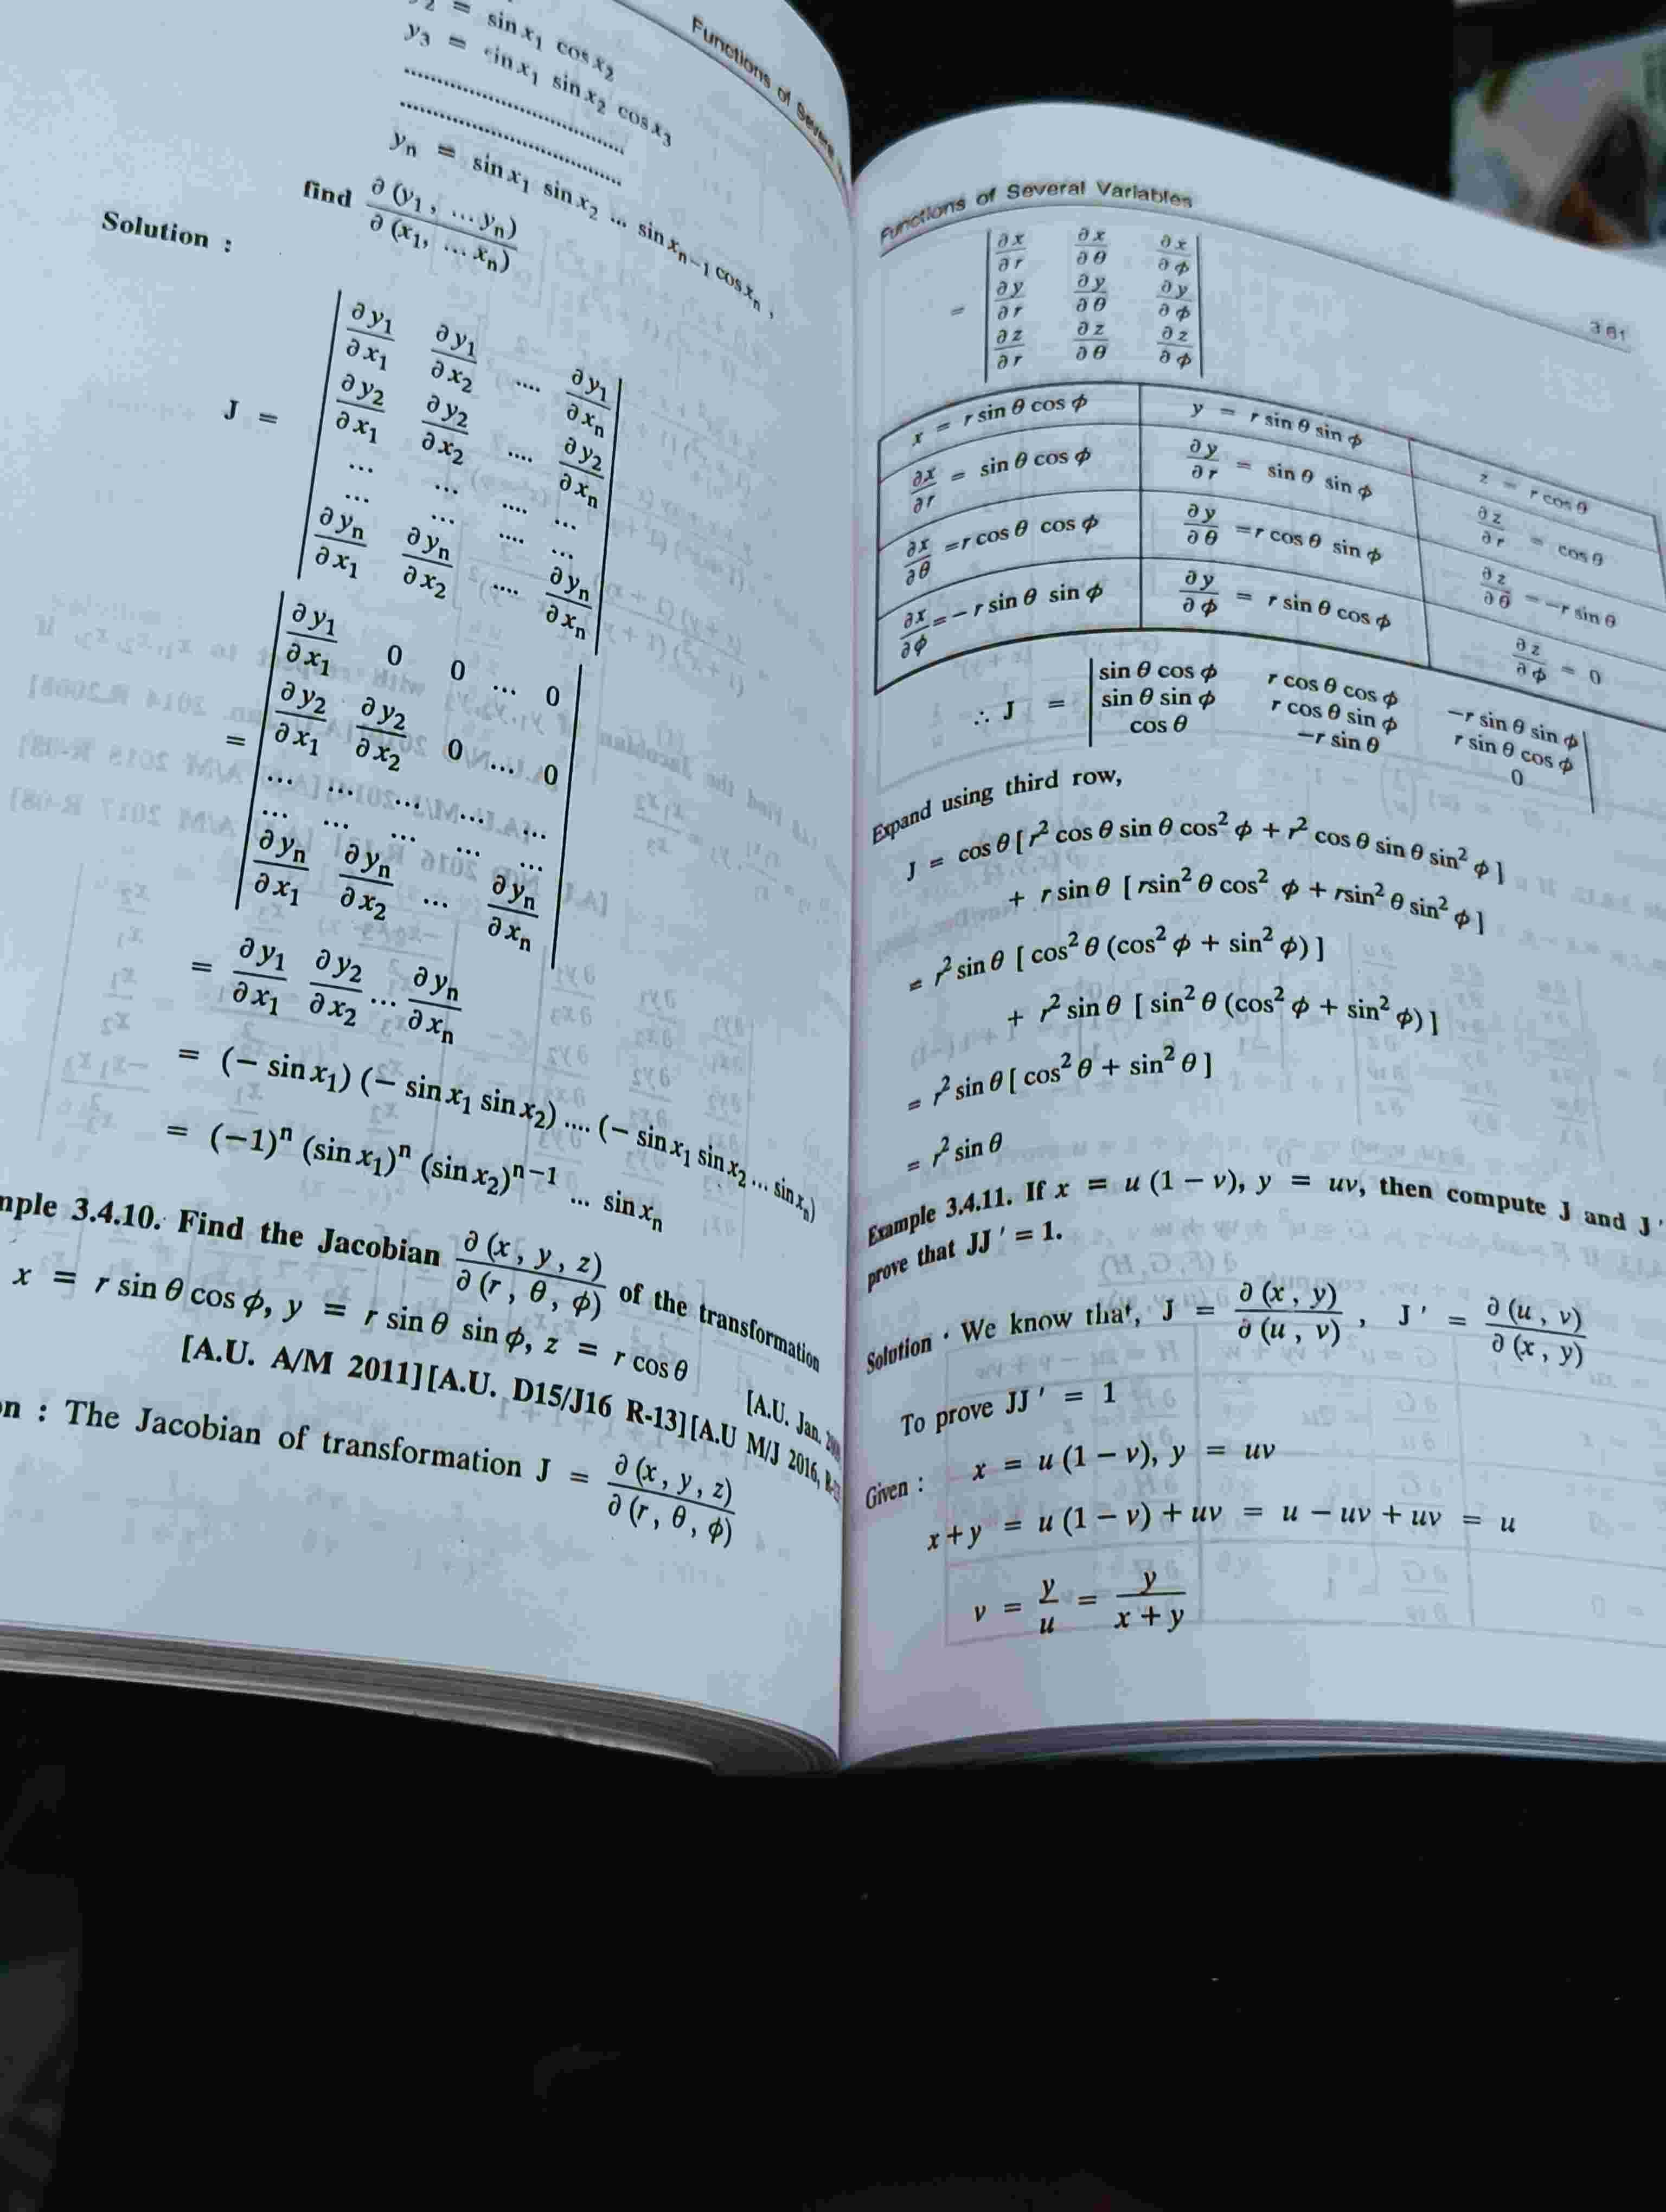 Functions of Severa
= sin x₁ cos x₂
y₃ = sin x₁ sin x₂ cos x₃
........................................
........................................
yₙ = sin x₁ sin x₂ ... sin xₙ₋₁ cos xₙ ,
find ∂ (y₁ , ... yₙ) / ∂ (x₁, ... xₙ)
Solution :
J = | ∂y₁/∂x₁ ∂y₁/∂x₂ .... ∂y₁/∂xₙ |
| ∂y₂/∂x₁ ∂y₂/∂x₂ .... ∂y₂/∂xₙ |
| ... ... .... ... |
| ... ... .... ... |
| ∂yₙ/∂x₁ ∂yₙ/∂x₂ .... ∂yₙ/∂xₙ |
= | ∂y₁/∂x₁ 0 0 ... 0 |
| ∂y₂/∂x₁ ∂y₂/∂x₂ 0 ... 0 |
| ... ... ... ... ... |
| ... ... ... ... ... |
| ∂yₙ/∂x₁ ∂yₙ/∂x₂ ... ∂yₙ/∂xₙ |
= ∂y₁/∂x₁ ∂y₂/∂x₂ ... ∂yₙ/∂xₙ
= (− sin x₁) (− sin x₁ sin x₂) .... (− sin x₁ sin x₂ ... sin xₙ)
= (−1)ⁿ (sin x₁)ⁿ (sin x₂)ⁿ⁻¹ ... sin xₙ
mple 3.4.10. Find the Jacobian ∂ (x , y , z) / ∂ (r , θ , ϕ) of the transformation
x = r sin θ cos ϕ, y = r sin θ sin ϕ, z = r cos θ
[A.U. Jan.
[A.U. A/M 2011] [A.U. D15/J16 R-13] [A.U M/J 2016,
on : The Jacobian of transformation J = ∂ (x , y , z) / ∂ (r , θ , ϕ)
Functions of Several Variables
3.61
= | ∂x/∂r ∂x/∂θ ∂x/∂ϕ |
| ∂y/∂r ∂y/∂θ ∂y/∂ϕ |
| ∂z/∂r ∂z/∂θ ∂z/∂ϕ |
x = r sin θ cos ϕ y = r sin θ sin ϕ z = r cos θ
∂x/∂r = sin θ cos ϕ ∂y/∂r = sin θ sin ϕ ∂z/∂r = cos θ
∂x/∂θ = r cos θ cos ϕ ∂y/∂θ = r cos θ sin ϕ ∂z/∂θ = −r sin θ
∂x/∂ϕ = − r sin θ sin ϕ ∂y/∂ϕ = r sin θ cos ϕ ∂z/∂ϕ = 0
∴ J = | sin θ cos ϕ r cos θ cos ϕ −r sin θ sin ϕ |
| sin θ sin ϕ r cos θ sin ϕ r sin θ cos ϕ |
| cos θ −r sin θ 0 |
Expand using third row,
J = cos θ [ r² cos θ sin θ cos² ϕ + r² cos θ sin θ sin² ϕ ]
+ r sin θ [ rsin² θ cos² ϕ + rsin² θ sin² ϕ ]
= r² sin θ [ cos² θ (cos² ϕ + sin² ϕ) ]
+ r² sin θ [ sin² θ (cos² ϕ + sin² ϕ) ]
= r² sin θ [ cos² θ + sin² θ ]
= r² sin θ
Example 3.4.11. If x = u (1 − v), y = uv, then compute J and J '
prove that JJ ' = 1.
Solution · We know that, J = ∂ (x , y) / ∂ (u , v) , J ' = ∂ (u , v) / ∂ (x , y)
To prove JJ ' = 1
Given : x = u (1 − v), y = uv
x + y = u (1 − v) + uv = u − uv + uv = u
v = y/u = y/(x + y)